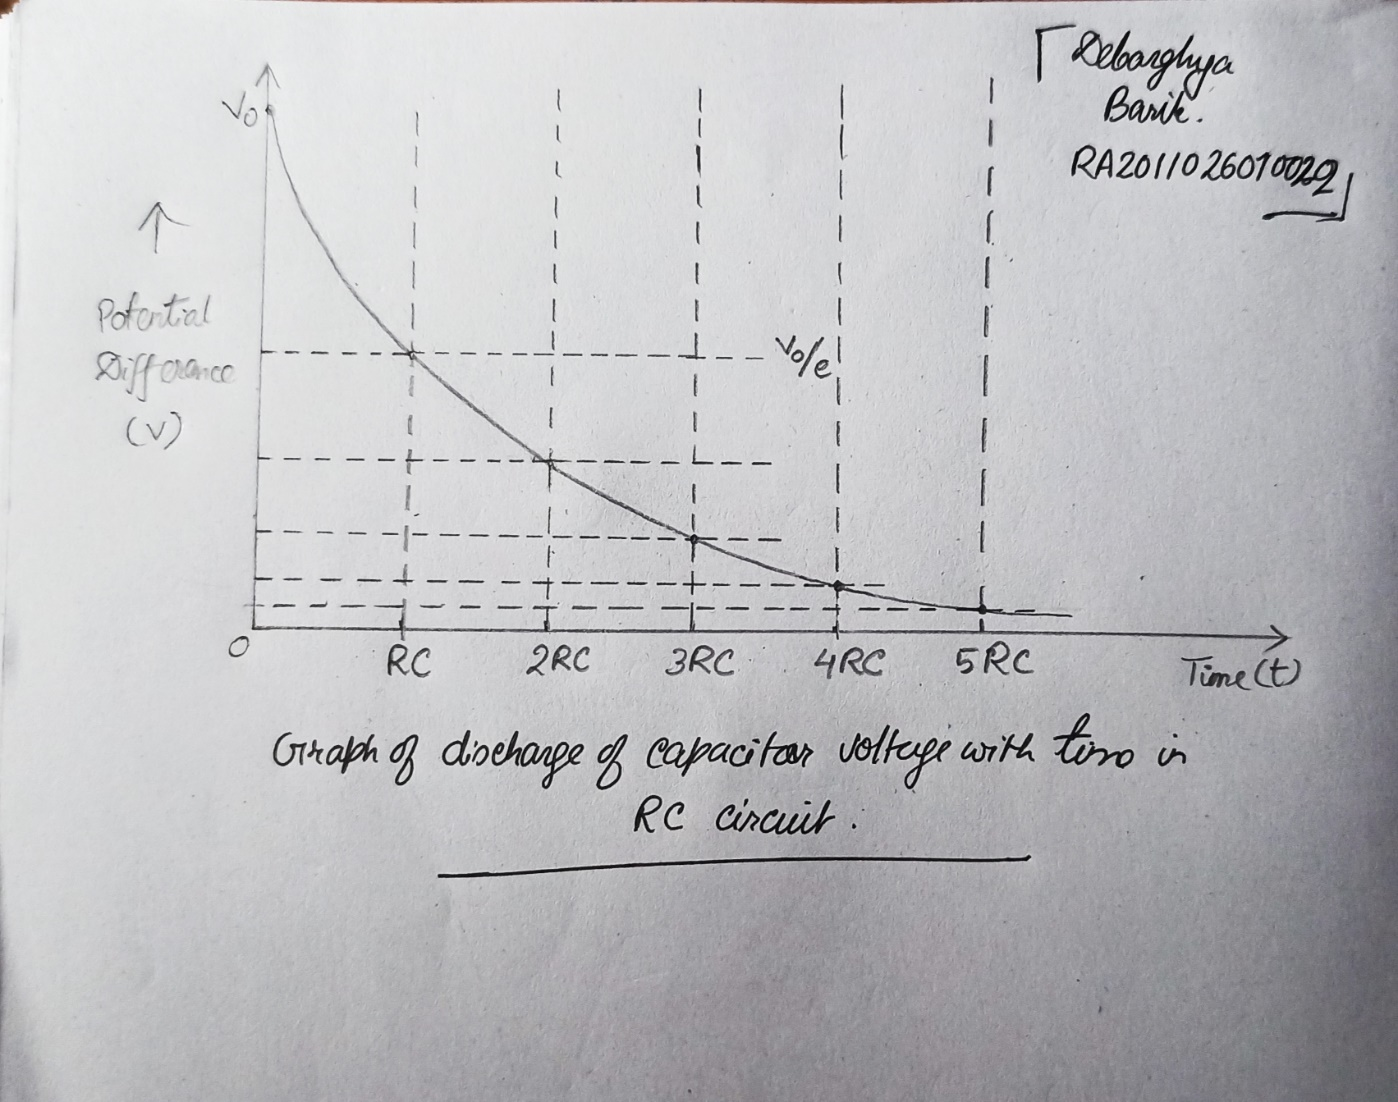 Debarghya
Barik.
RA2011026010022
V0
↑
Potential
Difference
(V)
V0/e
0
RC 2RC 3RC 4RC 5RC
Time(t)
Graph of discharge of capacitor voltage with time in
RC circuit.